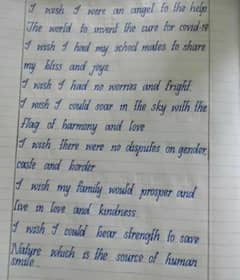 I wish I were an angel to the help
The world to invent the cure for covid-19
I wish I had my school mates to share
my bliss and joys.
I wish I had no worries and fright.
I wish I could soar in the sky with the
flag of harmony and love
I wish there were no disputes on gender,
caste and border
I wish my family would prosper and
live in love and kindness.
I wish I could hear strength to save
Nature which is the source of human
smile